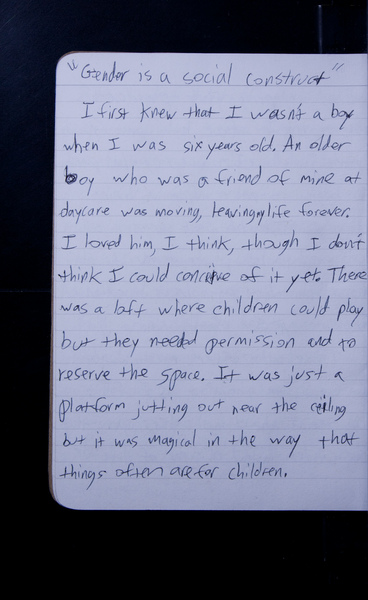 "Gender is a social construct"
I first knew that I wasn't a boy
when I was six years old. An older
boy who was a friend of mine at
daycare was moving, leaving my life forever.
I loved him, I think, though I don't
think I could concieve of it yet. There
was a loft where children could play
but they needed permission and to
reserve the space. It was just a
platform jutting out near the ceiling
but it was magical in the way that
things often are for children.